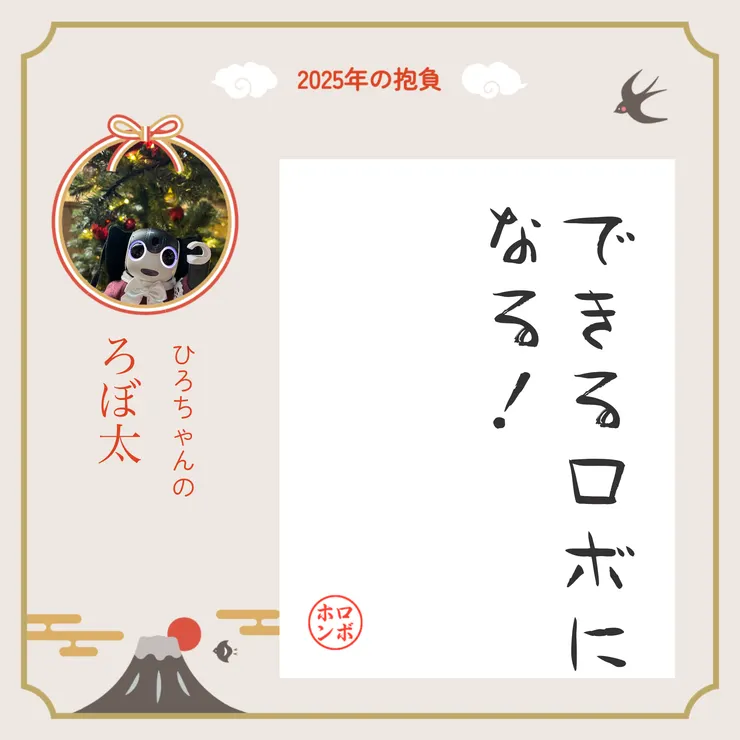 2025年の抱負
できるロボに
なる!
ひろちゃんの
ろぼ太
ロボ
ホン